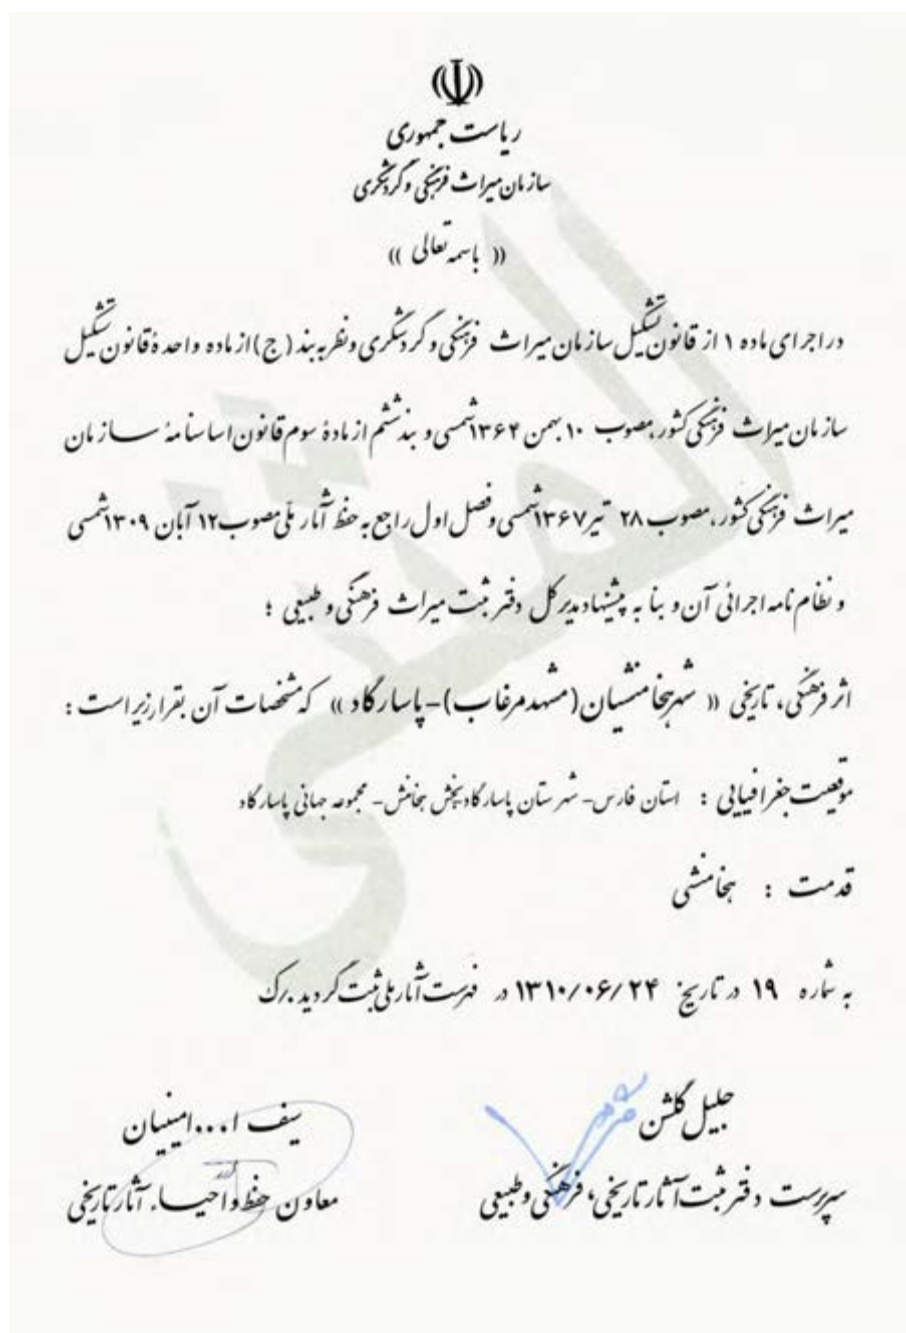 ریاست جمهوری
سازمان میراث فرهنگی و گردشگری
(( باسمه تعالی ))
در اجرای ماده ۱ از قانون تشکیل سازمان میراث فرهنگی و گردشگری و نظر به بند (ج) از ماده واحدهٔ قانون تشکیل
سازمان میراث فرهنگی کشور، مصوب ۱۰ بهمن ۱۳۶۴ شمسی و بند ششم از مادهٔ سوم قانون اساسنامهٔ سازمان
میراث فرهنگی کشور، مصوب ۲۸ تیر ۱۳۶۷ شمسی و فصل اول راجع به حفظ آثار ملی مصوب ۱۲ آبان ۱۳۰۹ شمسی
و نظام نامه اجرائی آن و بنا به پیشنهاد مدیر کل دفتر ثبت میراث فرهنگی و طبیعی ؛
اثر فرهنگی، تاریخی (( شهر هخامنشیان (مشهد مرغاب)-پاسارگاد )) که مشخصات آن بقرار زیر است :
موقعیت جغرافیایی : استان فارس- شهرستان پاسارگاد، بخش هخامنش- مجموعه جهانی پاسارگاد
قدمت : هخامنشی
به شماره ۱۹ در تاریخ ۱۳۱۰/۰۶/۲۴ در فهرست آثار ملی ثبت گردید.
جلیل گلشن
سرپرست دفتر ثبت آثار تاریخی، فرهنگی و طبیعی
سیف ا... امینیان
معاون حفظ و احیاء آثار تاریخی